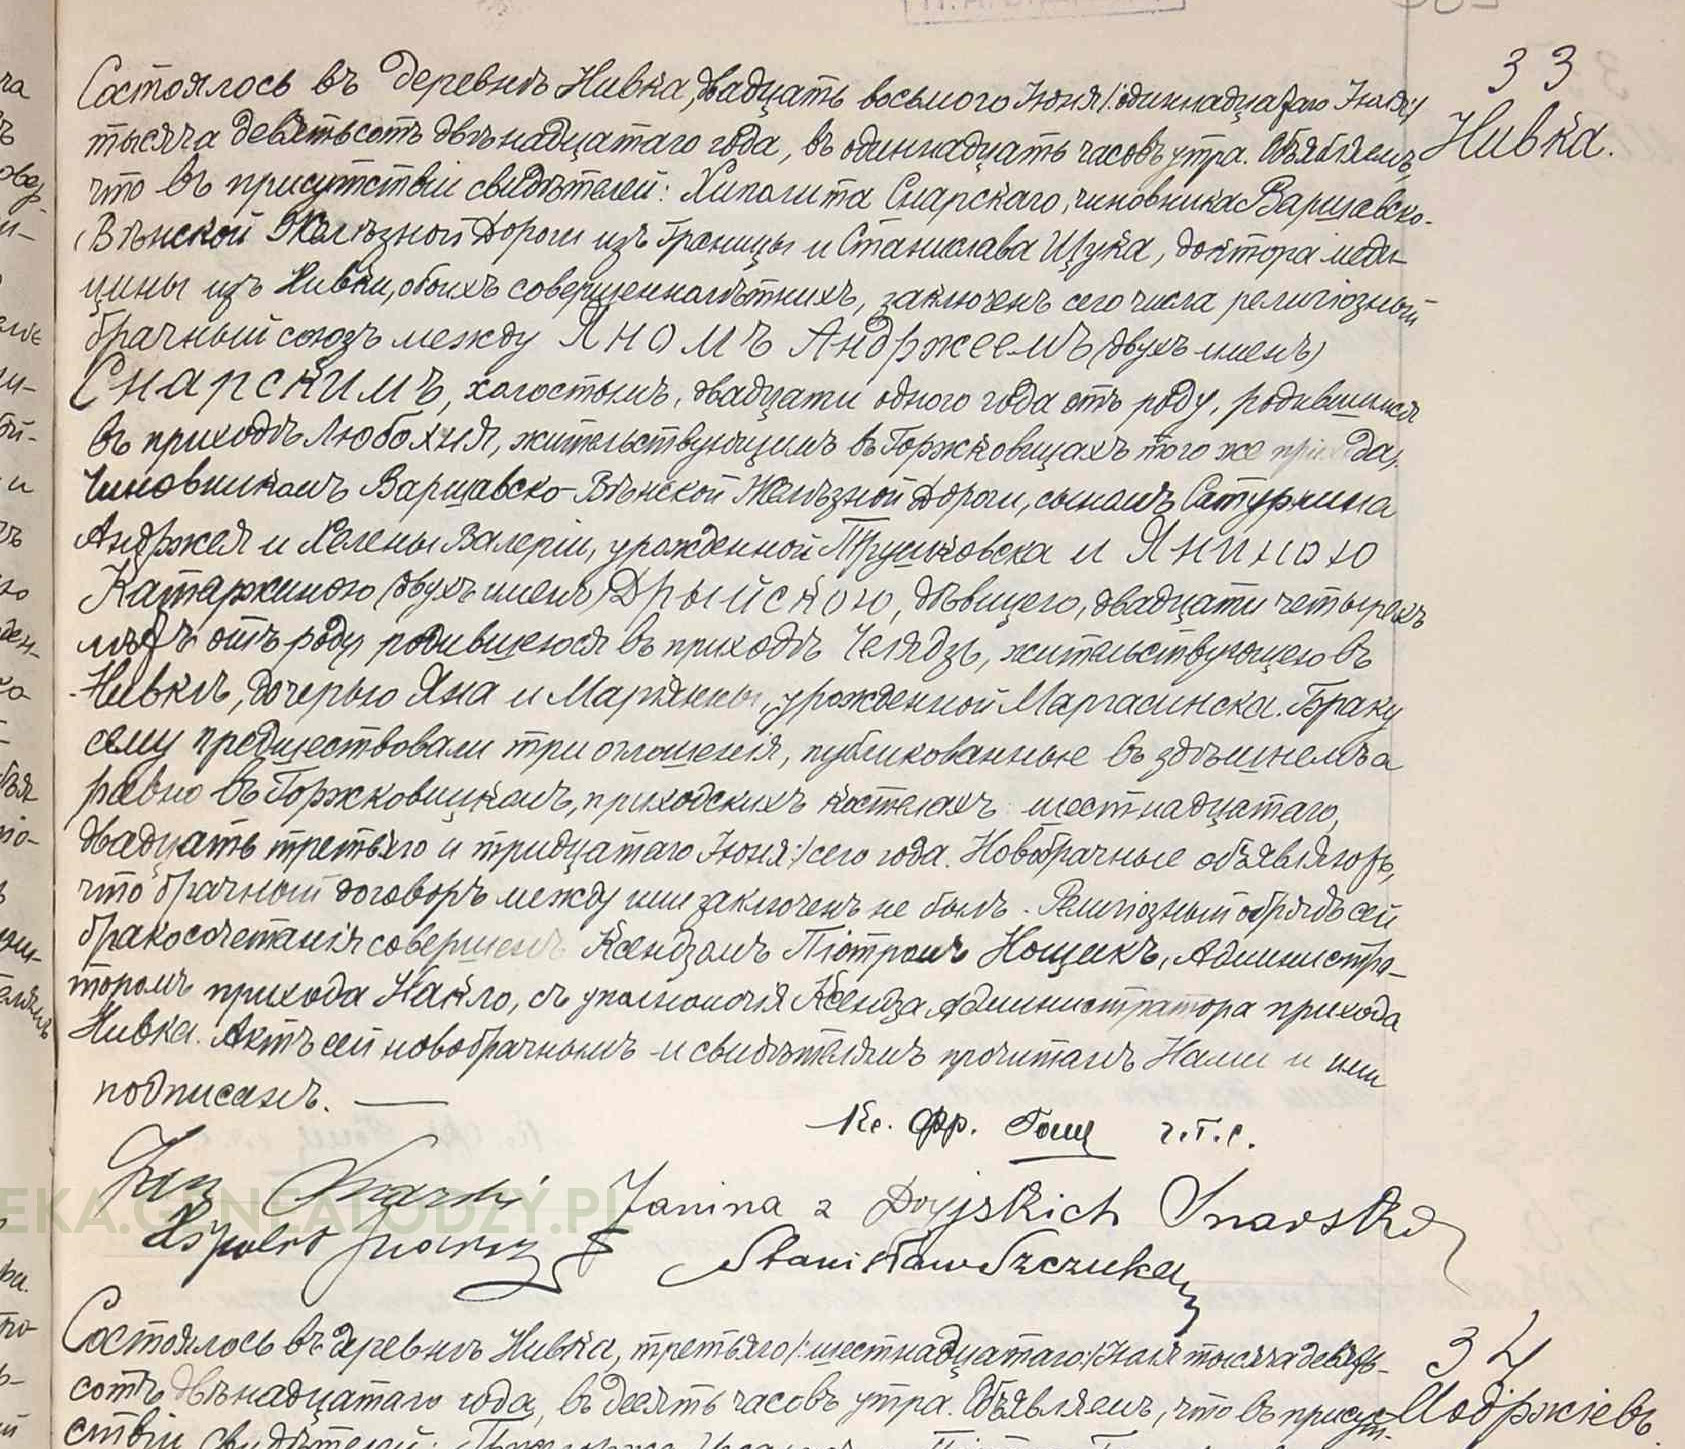 33
Нивка.
Состоялось въ деревнѣ Нивка, двадцать восьмого Іюня /:одиннадцатаго Іюля:/
тысяча девятьсотъ двѣнадцатаго года, въ одиннадцать часовъ утра. Объявляемъ,
что въ присутствіи свидѣтелей: Хиполита Снарскаго, чиновника Варшавско-
Вѣнской Желѣзной Дороги изъ Границы и Станислава Щука, доктора меди-
цины изъ Нивки, обоихъ совершеннолѣтнихъ, заключенъ сего числа религіозный
брачный союзъ между Яномъ Анджеемъ (двухъ именъ)
Снарскимъ, холостымъ, двадцати одного года отъ роду, родившимся
въ приходѣ Любохня, жительствующимъ въ Горжковицахъ того же прихода,
Чиновникомъ Варшавско-Вѣнской Желѣзной Дороги, сыномъ Сатурнина
Анджея и Хелены Валеріи, урожденной Прушковска и Яниною
Катаржиною (двухъ именъ) Дрыйскою, дѣвицею, двадцати четырехъ
лѣтъ отъ роду родившеюся въ приходѣ Челядзь, жительствующею въ
Нивкѣ, дочерью Яна и Марянны, урожденной Маргасинска. Браку
сему предшествовали три оглошенія, публикованные въ здѣшнемъ а
равно въ Горжковицкомъ, приходскихъ костелахъ шестнадцатаго,
двадцать третьяго и тридцатаго Іюня:/ сего года. Новобрачные объявляютъ,
что брачный договоръ между ими заключенъ не былъ. Религіозный обрядъ сей
бракосочетанія совершенъ Ксендзомъ Піотромъ Нощикъ, Администра-
торомъ прихода Накло, съ уполномочія Ксендза Администратора прихода
Нивка. Актъ сей новобрачнымъ и свидѣтелямъ прочитанъ Нами и ими
подписанъ.
Кс. Фр. Гощ ч.г.с.
Jan Snarski Janina z Dryjskich Snarska
Hipolit Snarski Stanisław Szczuka
EKA.GENEALODZY.PL
34
Модржіевъ.
Состоялось въ деревнѣ Нивка, третьяго /:шестнадцатаго:/ Іюля тысяча девять-
сотъ двѣнадцатаго года, въ десять часовъ утра. Объявляемъ, что въ присут-
ствіи свидѣтелей: